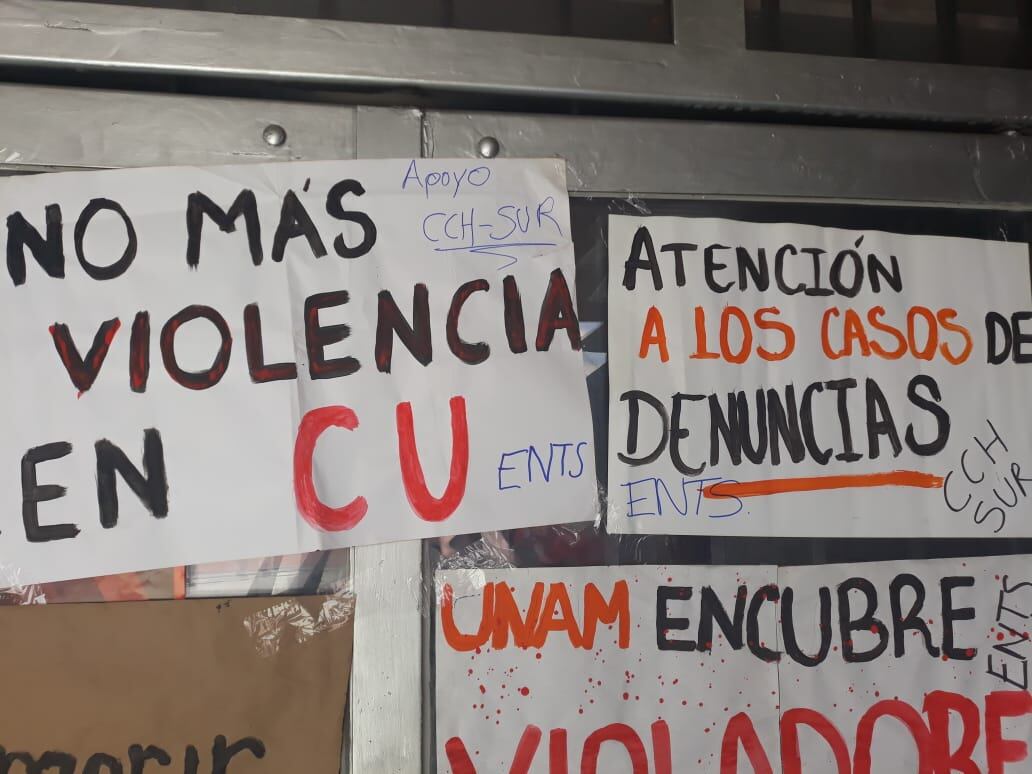 NO MÁS
VIOLENCIA
EN CU
Apoyo
CCH-SUR
ENTS
ATENCIÓN
A LOS CASOS DE
DENUNCIAS
ENTS.
CCH
SUR
UNAM ENCUBRE
VIOLADORE
ENTS
morir